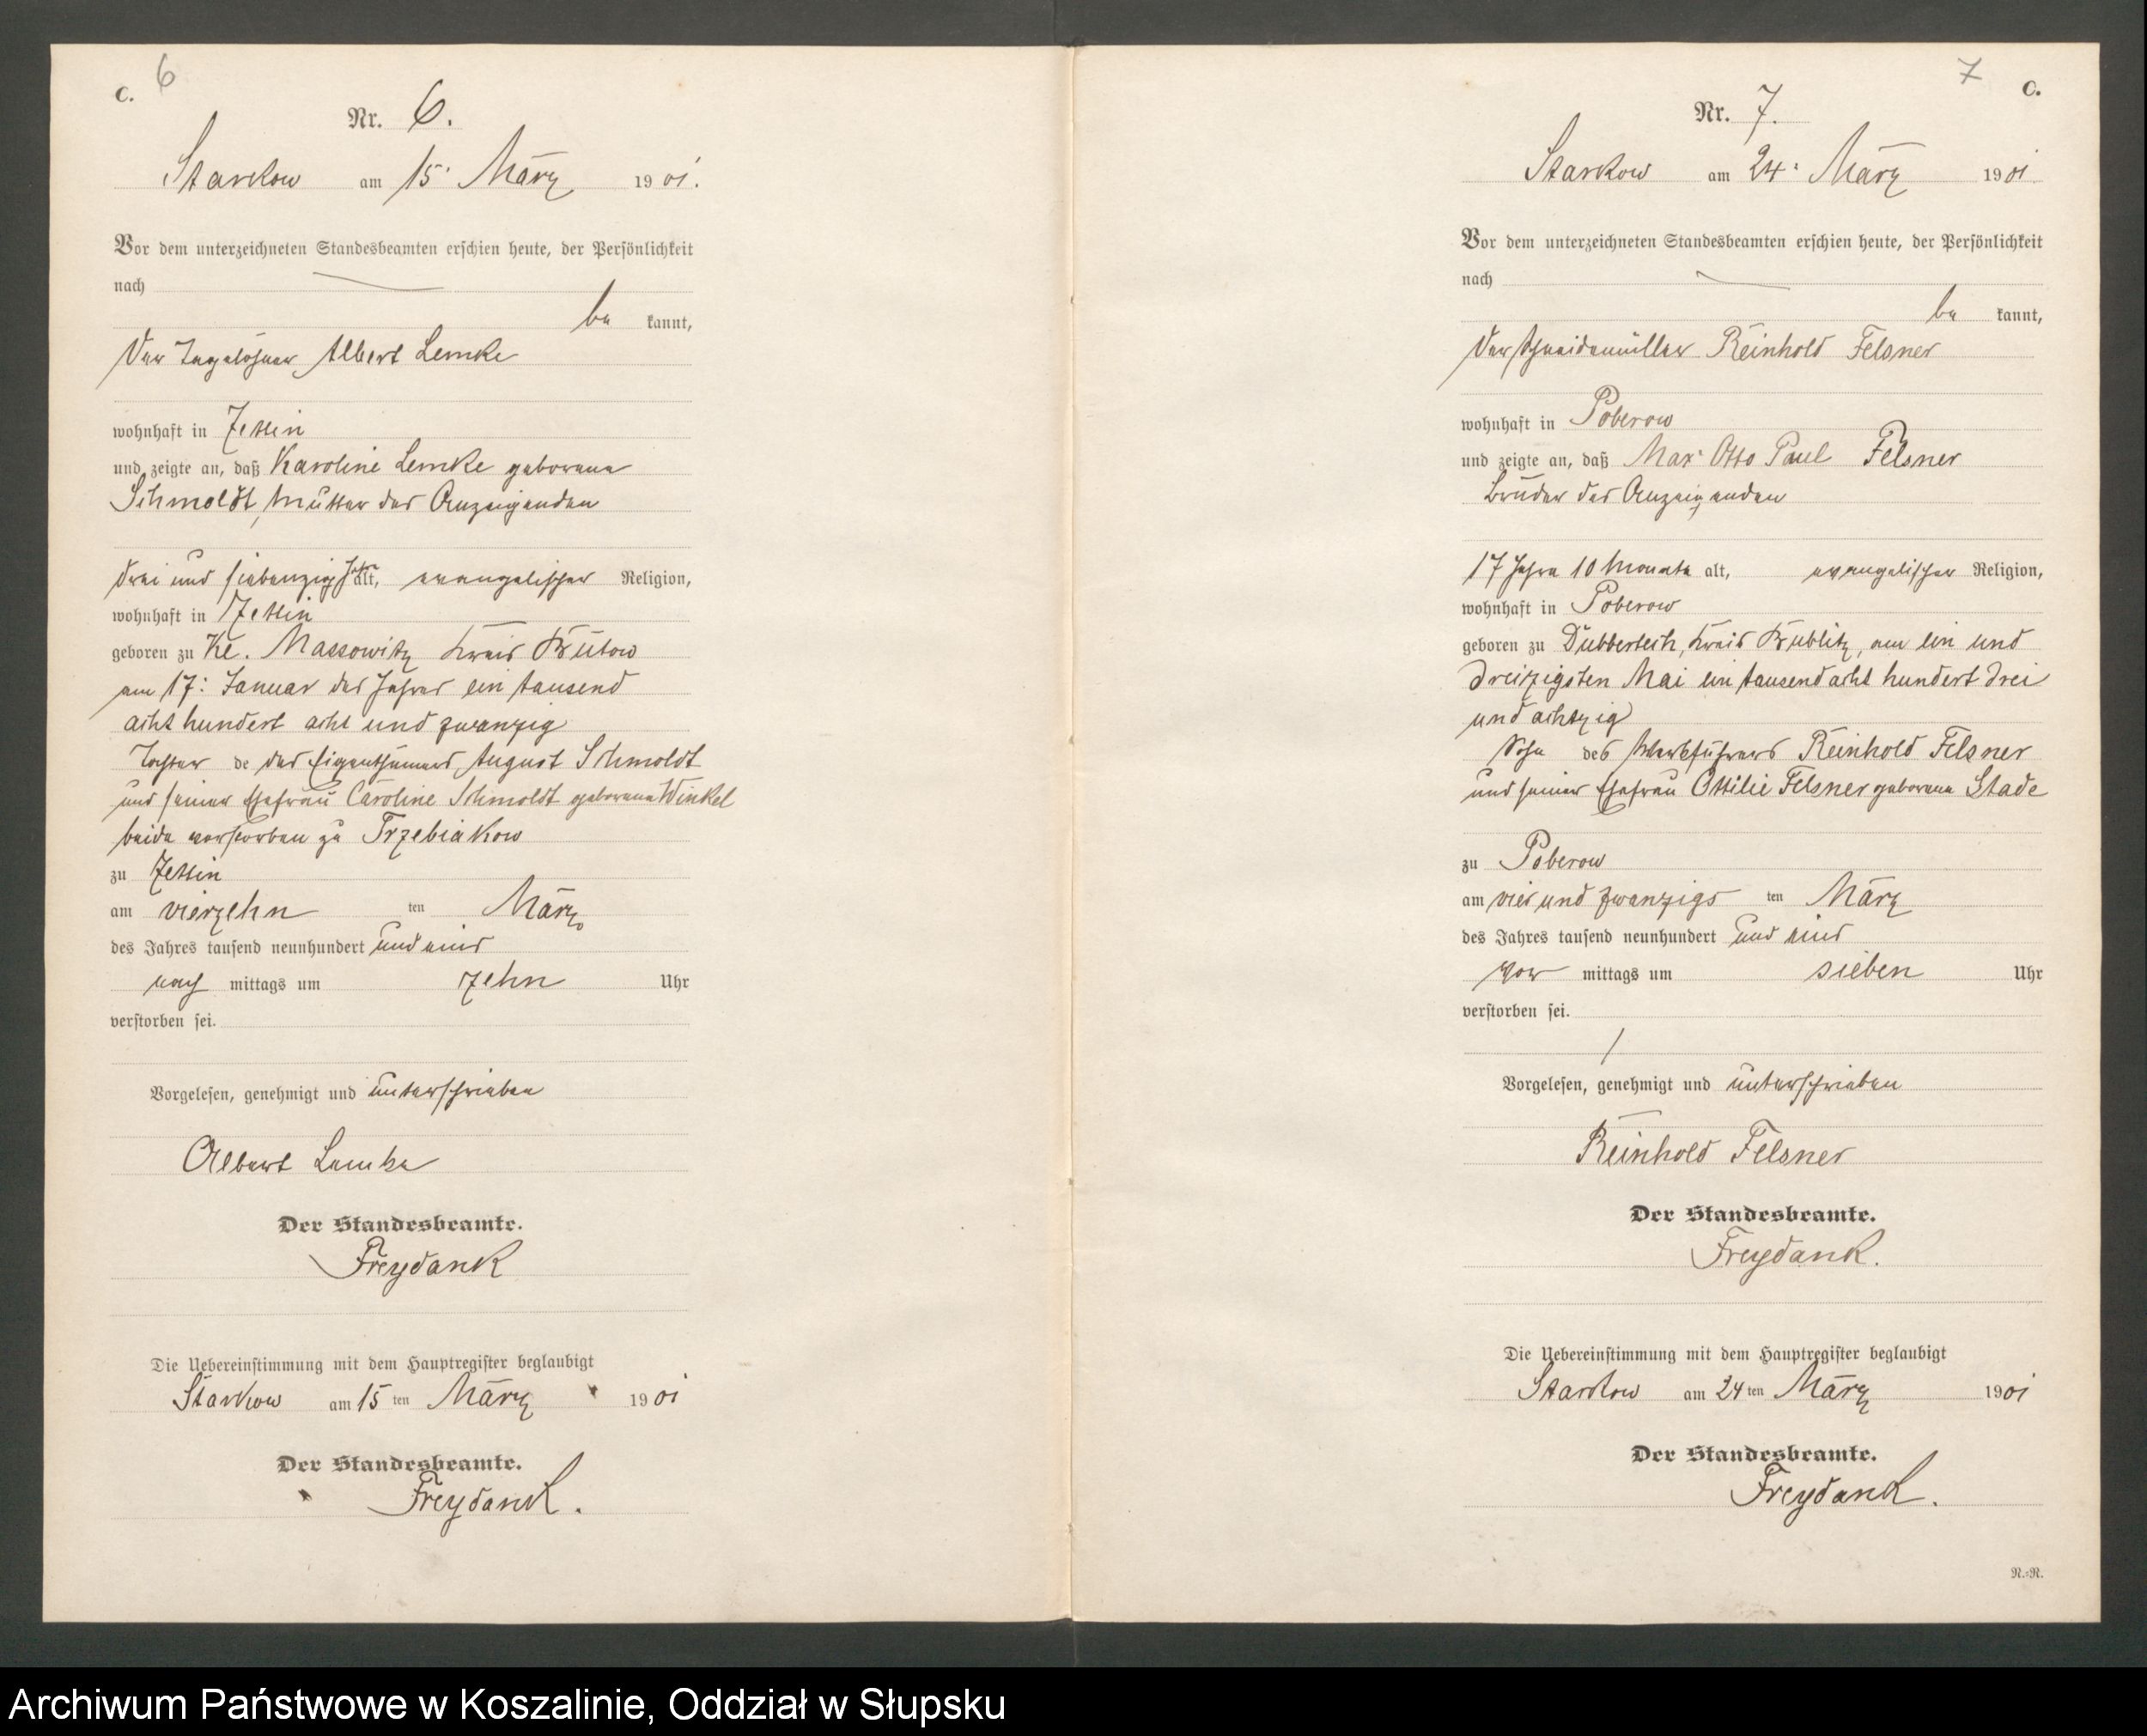 C. 6
Nr. 6.
Starkow am 15. März 1901.
Vor dem unterzeichneten Standesbeamten erschien heute, der Persönlichkeit
nach
be kannt,
Der Tagelöhner Albert Lemke
wohnhaft in Zettin
und zeigte an, daß Karoline Lemke geborene
Schmoldt, Mutter des Anzeigenden
drei und siebenzig Jahre alt, evangelischer Religion,
wohnhaft in Zettin
geboren zu Kl. Massowitz Kreis Bütow
am 17: Januar des Jahres ein tausend
acht hundert acht und zwanzig
Tochter de des Eigenthümers August Schmoldt
und seiner Ehefrau Caroline Schmoldt geborene Winkel
beide verstorben zu Trzebiatkow
zu Zettin
am vierzehn ten März
des Jahres tausend neunhundert und eins
nach mittags um zehn Uhr
verstorben sei.
Vorgelesen, genehmigt und unterschrieben
Albert Lemke
Der Standesbeamte.
Freydank
Die Uebereinstimmung mit dem Hauptregister beglaubigt
Starkow am 15 ten März 1901
Der Standesbeamte.
Freydank.
7 C.
Nr. 7.
Starkow am 24. März 1901
Vor dem unterzeichneten Standesbeamten erschien heute, der Persönlichkeit
nach
be kannt,
Der Schneidemüller Reinhold Felsner
wohnhaft in Poberow
und zeigte an, daß Max Otto Paul Felsner
Bruder des Anzeigenden
17 Jahre 10 Monate alt, evangelischer Religion,
wohnhaft in Poberow
geboren zu Dubbertech, Kreis Bublitz, am ein und
dreizigsten Mai ein tausend acht hundert drei
und achtzig
Sohn des Werkführers Reinhold Felsner
und seiner Ehefrau Ottilie Felsner geborene Stade
zu Poberow
am vier und zwanzigs ten März
des Jahres tausend neunhundert und eins
vor mittags um sieben Uhr
verstorben sei.
Vorgelesen, genehmigt und unterschrieben
Reinhold Felsner
Der Standesbeamte.
Freydank.
Die Uebereinstimmung mit dem Hauptregister beglaubigt
Starkow am 24 ten März 1901
Der Standesbeamte.
Freydank.
N.=N.
Archiwum Państwowe w Koszalinie, Oddział w Słupsku